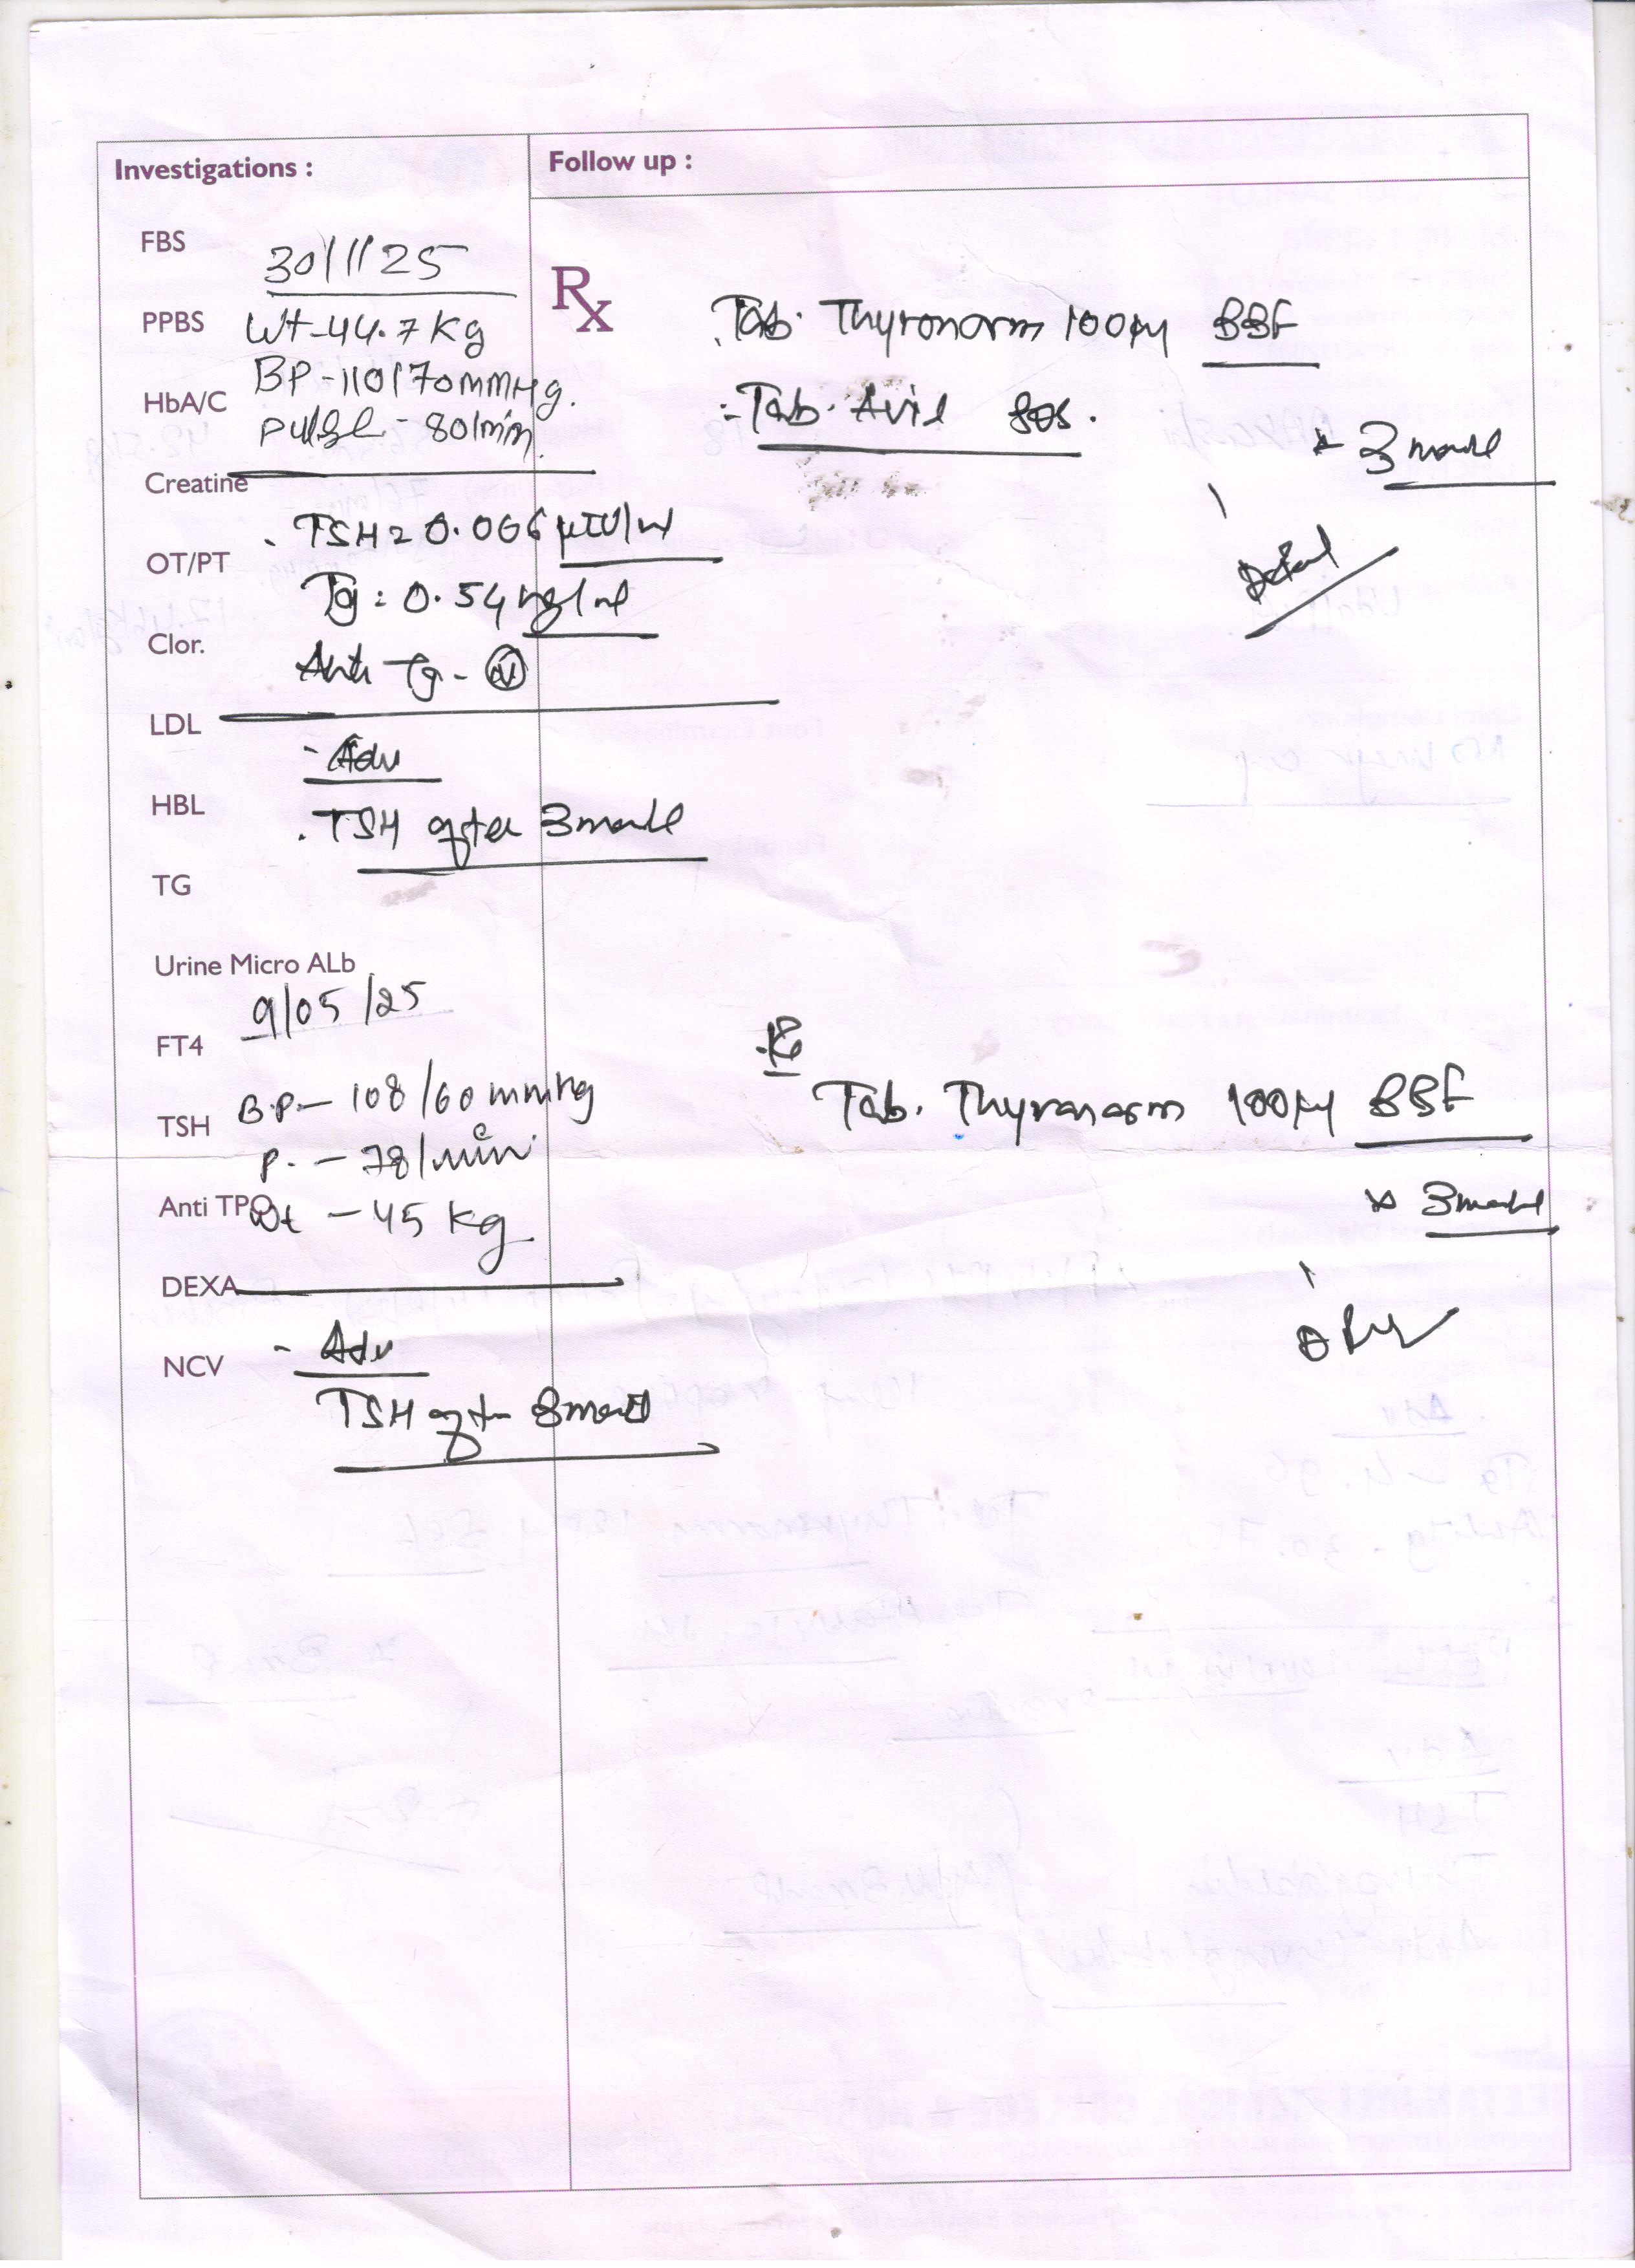 Investigations :
Follow up :
FBS
30/1/25
PPBS
Wt-44.7 Kg
Rx
Tab. Thyronorm 100µg BBF
HbA/C
BP-110/70mmHg.
Tab. Avil SOS.
pulse - 80/min
x 3 month
Creatine
TSH = 0.066 µIU/ml
OT/PT
Tg : 0.54 ng/ml
Clor.
Anti Tg - N
LDL
- Adv
HBL
. TSH after 3 month
TG
Urine Micro ALb
9/05/25
FT4
Rx
B.P. - 108/60 mmHg
Tab. Thyronorm 100µg BBF
TSH
P. - 78/min
x 3 month
Anti TPO
Wt - 45 kg
DEXA
- Adv
NCV
TSH after 3 month